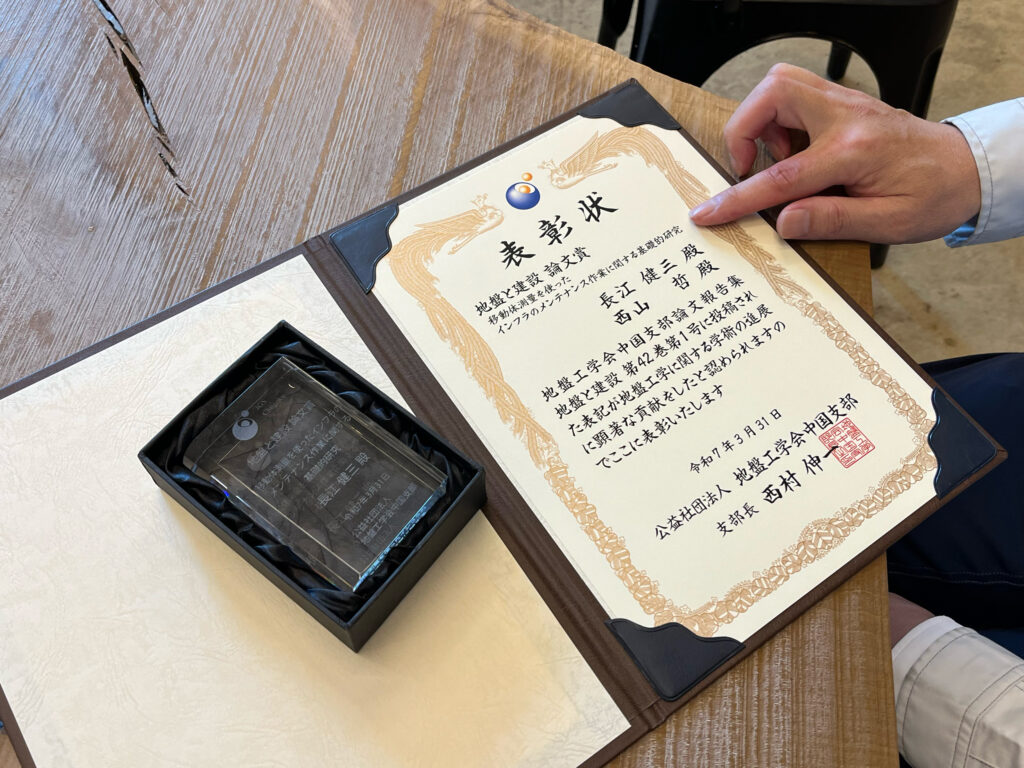 表彰状
地盤と建設 論文賞
移動体測量を使った
インフラのメンテナンス作業に関する基礎的研究
長江 健三 殿
西山 哲 殿
地盤工学会中国支部論文報告集
地盤と建設 第42巻第1号に投稿され
た表記が地盤工学に関する学術の進展
に顕著な貢献をしたと認められますの
でここに表彰いたします
令和7年3月31日
公益社団法人 地盤工学会中国支部
支部長 西村 伸一
地盤と建設論文賞
移動体測量を使ったインフラの
メンテナンス作業に関する
基礎的研究
長江 健三 殿
令和7年3月31日
公益社団法人
地盤工学会中国支部